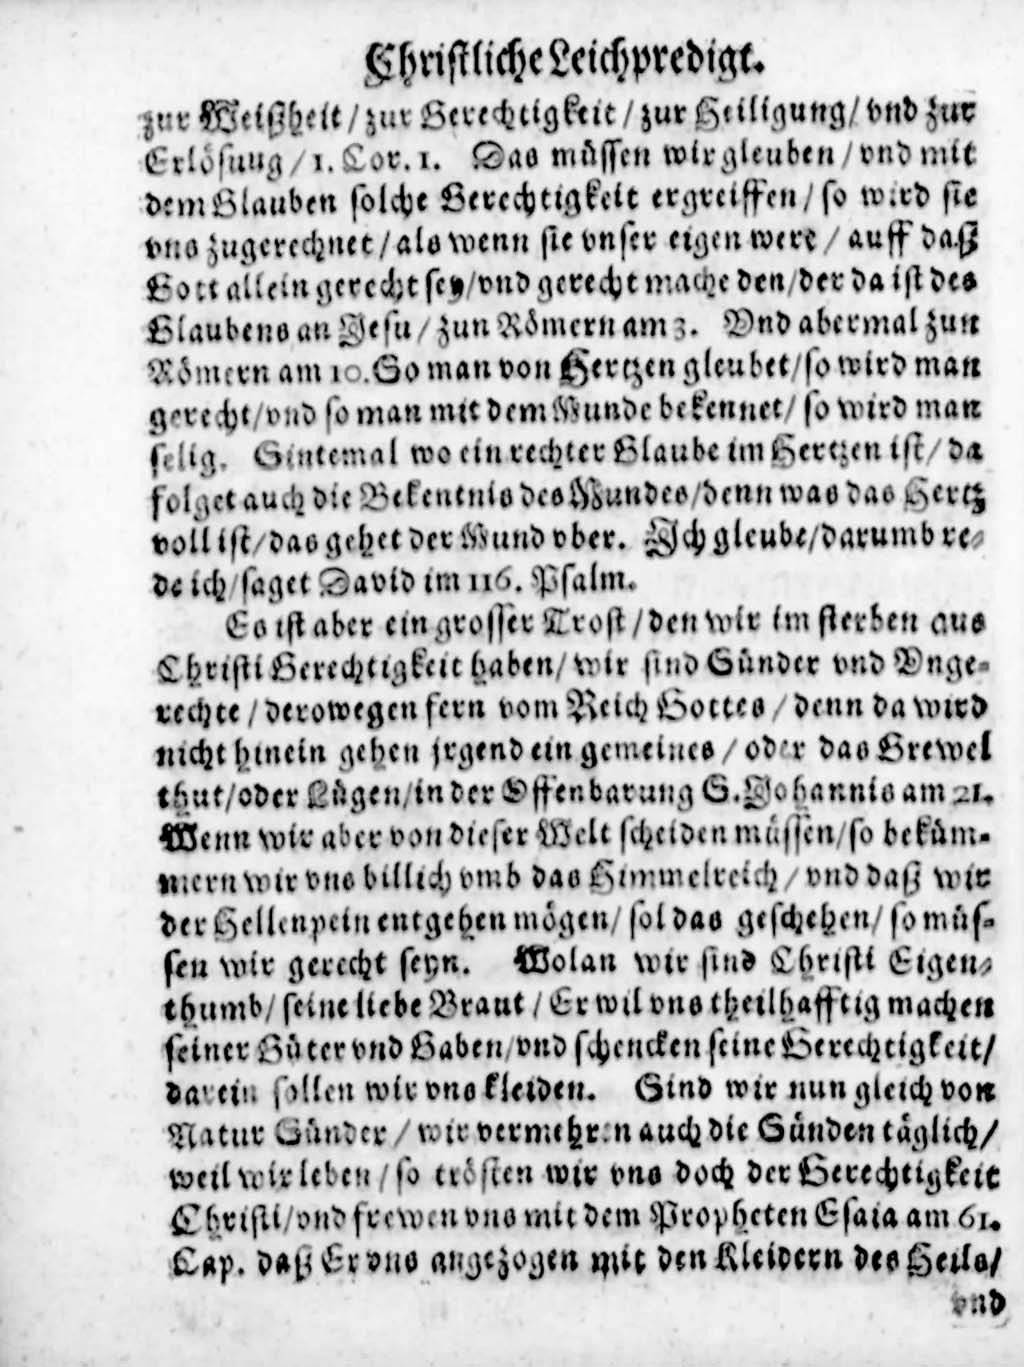 Christliche Leichpredigt.
zur Weißheit / zur Gerechtigkeit / zur Heiligung / vnd zur
Erlösung / 1. Cor. 1. Das müssen wir gleuben / vnd mit
dem Glauben solche Gerechtigkeit ergreiffen / so wird sie
vns zugerechnet / als wenn sie vnser eigen were / auff daß
Gott allein gerecht sey / vnd gerecht mache den / der da ist des
Glaubens an Jesu / zun Römern am 3. Vnd abermal zun
Römern am 10. So man von Hertzen gleubet / so wird man
gerecht / vnd so man mit dem Munde bekennet / so wird man
selig. Sintemal wo ein rechter Glaube im Hertzen ist / da
folget auch die Bekentnis des Mundes / denn was das Hertz
voll ist / das gehet der Mund vber. Ich gleube / darumb re-
de ich / saget David im 116. Psalm.
Es ist aber ein grosser Trost / den wir im sterben aus
Christi Gerechtigkeit haben / wir sind Sünder vnd Vnge-
rechte / derowegen fern vom Reich Gottes / denn da wird
nicht hinein gehen jrgend ein gemeines / oder das Grewel
thut / oder Lügen / in der Offenbarung S. Johannis am 21.
Wenn wir aber von dieser Welt scheiden müssen / so beküm-
mern wir vns billich vmb das Himmelreich / vnd daß wir
der Hellenpein entgehen mögen / sol das geschehen / so müs-
sen wir gerecht seyn. Wolan wir sind Christi Eigen-
thumb / seine liebe Braut / Er wil vns theilhafftig machen
seiner Güter vnd Gaben / vnd schencken seine Gerechtigkeit /
darein sollen wir vns kleiden. Sind wir nun gleich von
Natur Sünder / wir vermehren auch die Sünden täglich /
weil wir leben / so trösten wir vns doch der Gerechtigkeit
Christi / vnd frewen vns mit dem Propheten Esaia am 61.
Cap. daß Er vns angezogen mit den Kleidern des Heils /
vnd